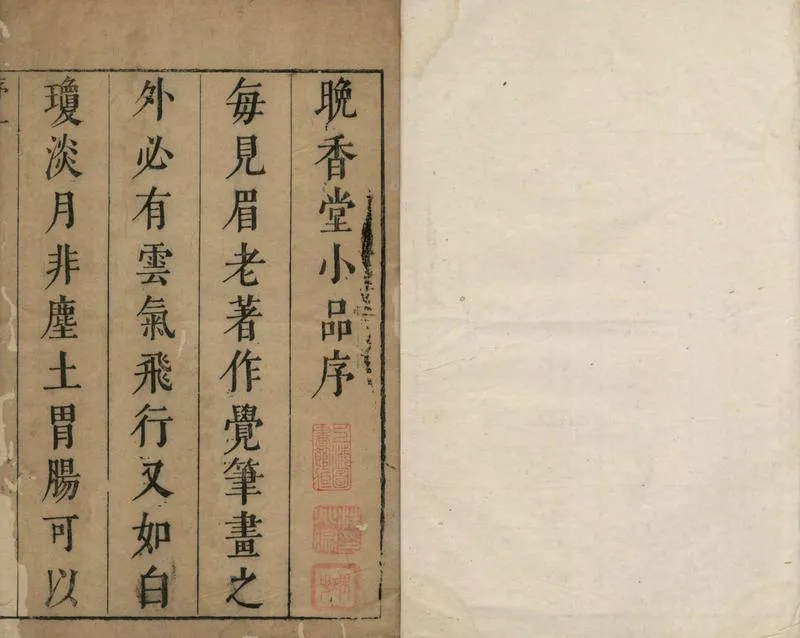 晚香堂小品序
每見眉老著作覺筆畫之
外必有雲氣飛行又如白
瓊淡月非塵土胃腸可以